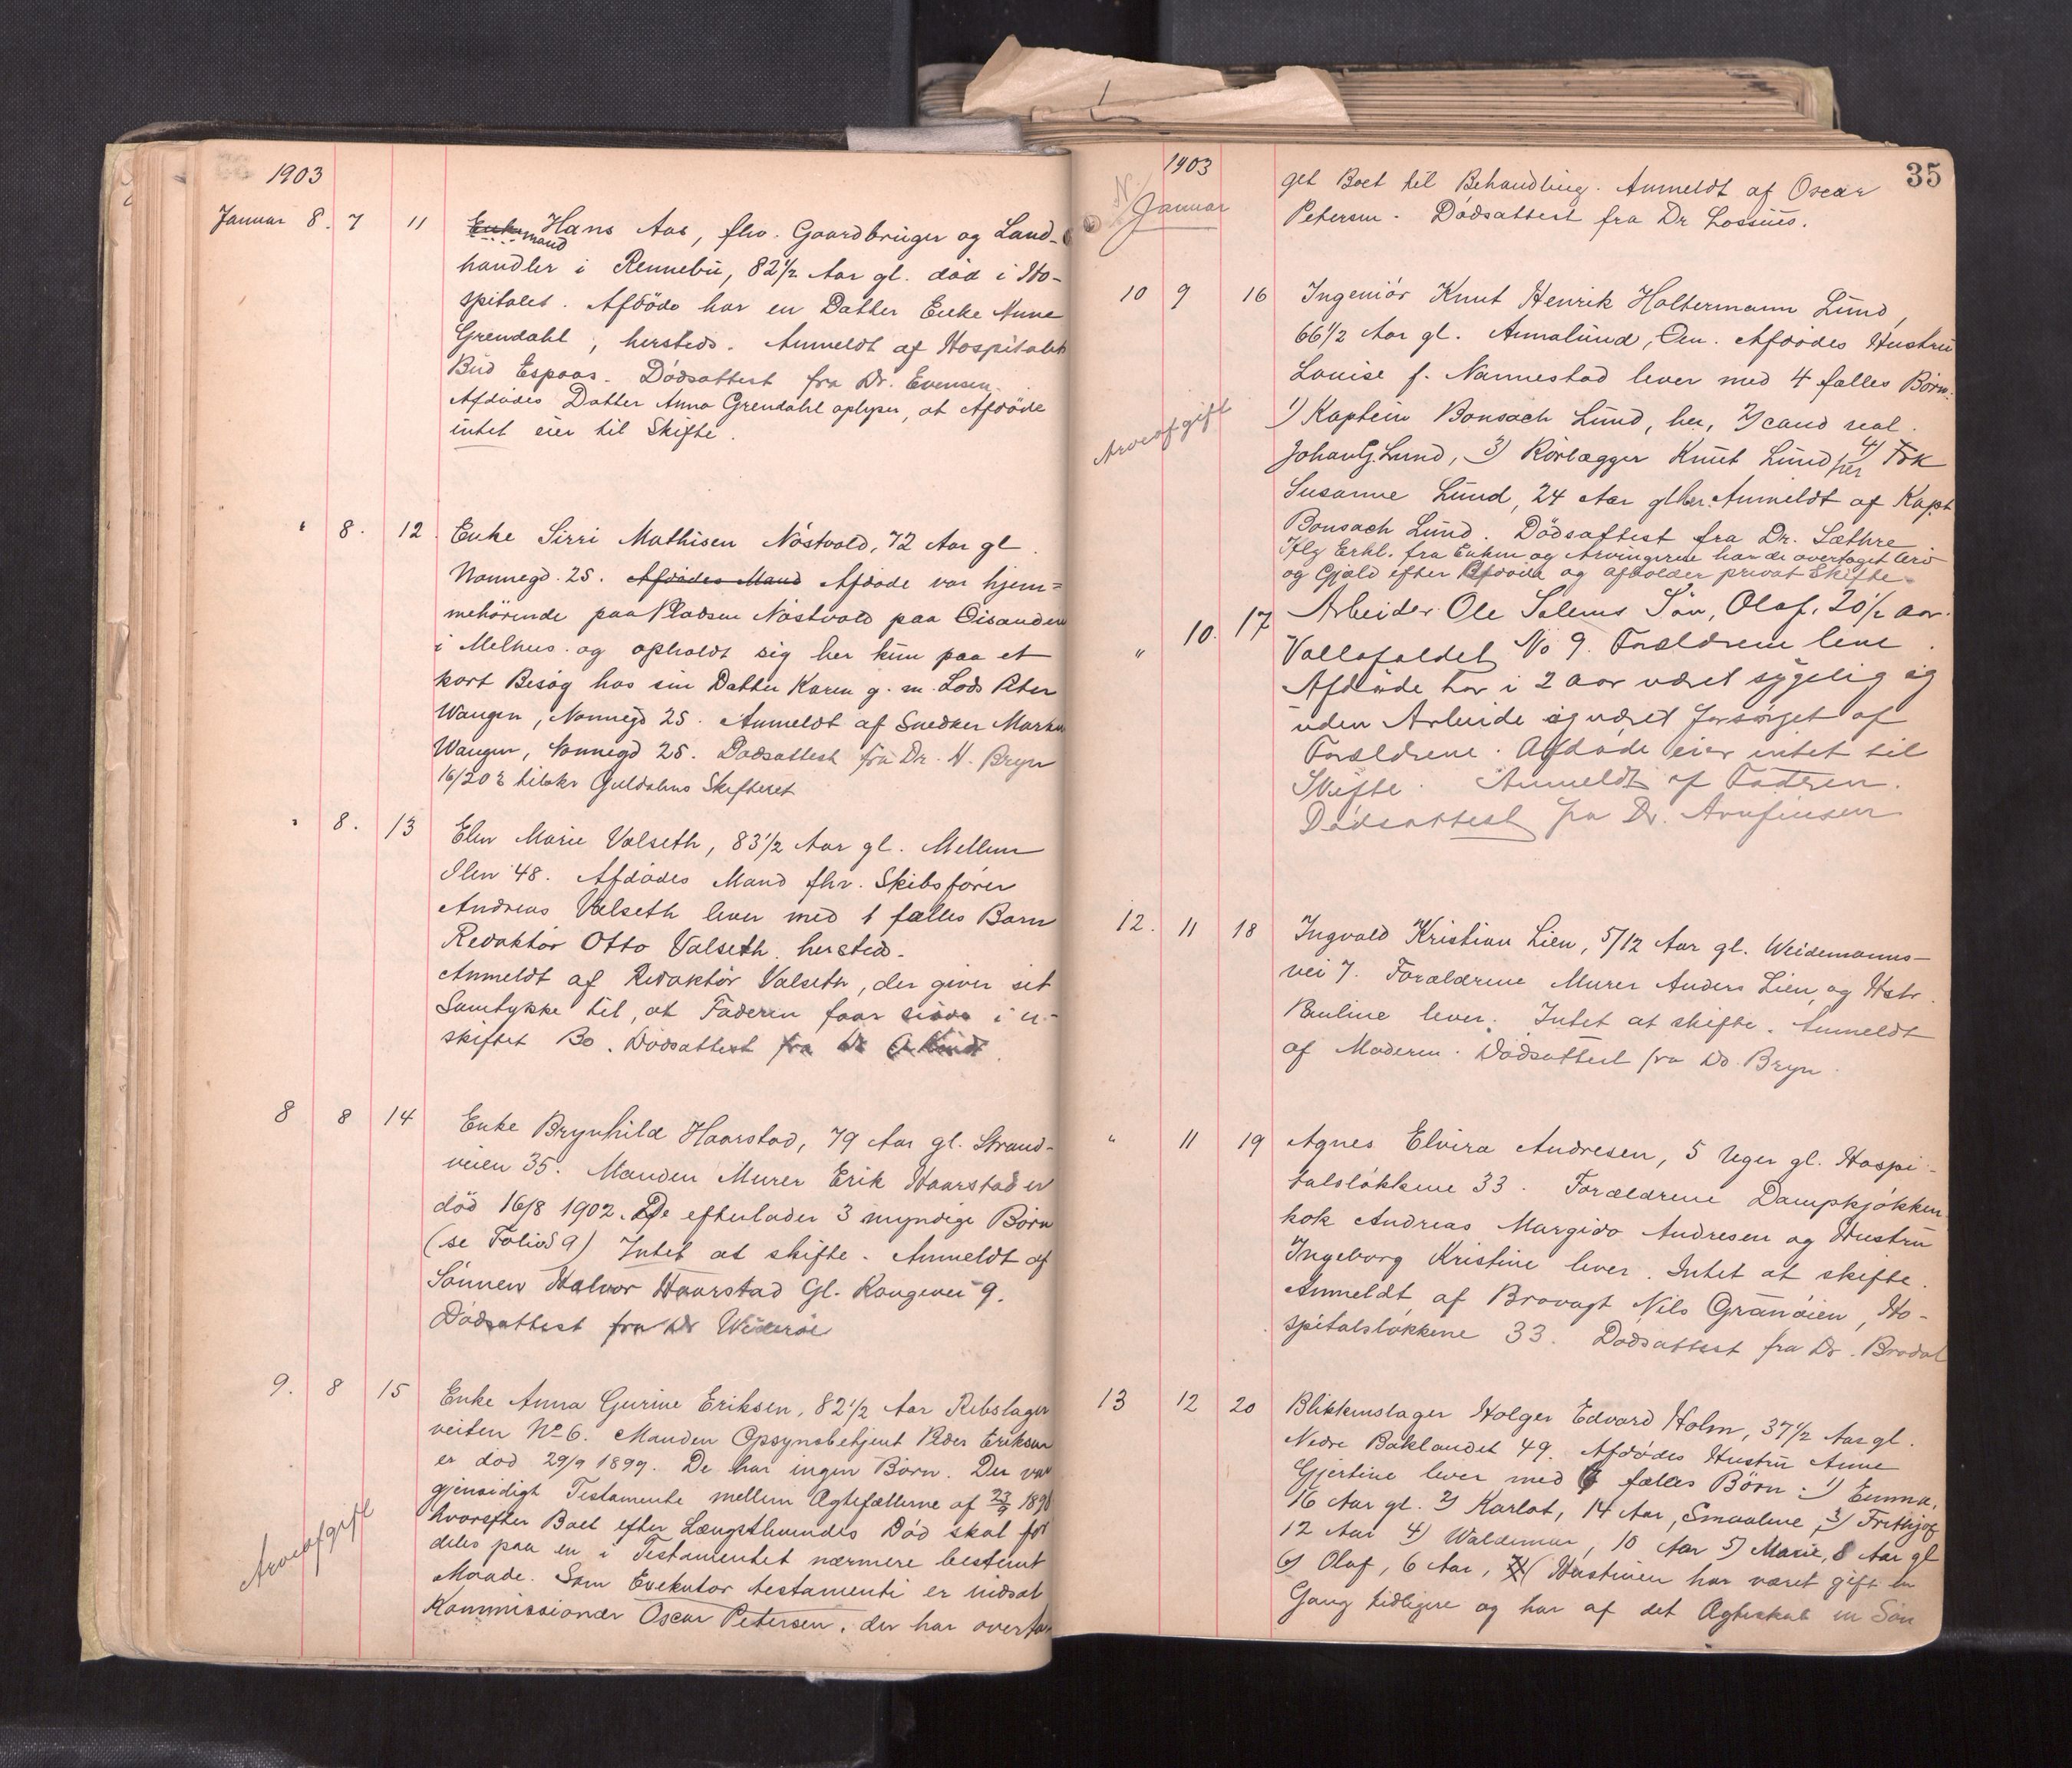 1903
Januar 8. 7 11 Enkemand Hans Aas, fhv. Gaardbruger og Land-
handler i Rennebu, 82 1/2 Aar gl. død i Ho-
spitalet. Afdøde har en Datter Enke Anne
Grendahl, hersteds. Anmeldt af Hospitalets
Bud Espaas. Dødsattest fra Dr. Evensen.
Afdødes Datter Anna Grendahl oplyser, at Afdøde
intet eier til Skifte.
" 8. 12. Enke Sirri Mathisen Nøstvold, 72 Aar gl.
Nonnegd. 25. Afdødes Mand Afdøde var hjem=
mehørende paa Pladsen Nøstvold paa Øisanden
i Melhus og opholdt sig her kun paa et
kort Besøg hos sin Datter Karen g. m. Lods Peter
Wangen, Nonnegd 25. Anmeldt af Snedker Martin
Wangen, Nonnegd 25. Dødsattest fra Dr. H. Bryn
16/1 03 tilskr Guldalens Skifteret
" 8. 13 Elen Marie Valseth, 83 1/2 Aar gl. Mellem
Ilen 48. Afdødes Mand fhv. Skibsfører
Andreas Valseth lever med 1 fælles Barn
Redaktør Otto Valseth hersteds.
Anmeldt af Redaktør Valseth, der giver sit
Samtykke til, at Faderen faar sidde i u-
skiftet Bo. Dødsattest fra Dr
8 8 14 Enke Brynhild Haarstad, 79 Aar gl. Strand-
veien 35. Manden Murer Erik Haarstad er
død 16/8 1902. De efterlader 3 myndige Børn
(se Folio 9) Intet at skifte. Anmeldt af
Sønnen Halvor Haarstad Gl. Kongevei 9.
Dødsattest fra Dr Widerøe
9. 8 15 Enke Anna Gurine Eriksen, 82 1/2 Aar Rebslager
veiten No 6. Manden Opsynsbetjent Peder Eriksen
er død 29/9 1899. De har ingen Børn. Der var
gjensidigt Testamente mellem Ægtefællerne af 23/9 189
hvorefter Boet efter Længstlevendes Død skal for
deles paa en i Testamentet nærmere bestemt
Arveafgift
Maade. Som Executor testamenti er indsat
Kommissionær Oscar Petersen, der har overta-
1903
35
Januar
get Boet til Behandling. Anmeldt af Oscar
Petersen. Dødsattest fra Dr Lossius.
10 9 16 Ingeniør Knut Henrik Holtermann Lund,
66 1/2 Aar gl. Annalund, Øen. Afdødes Hustru
Louise f. Nannestad lever med 4 fælles Børn:
Arveafgift
1) Kaptein Bonsach Lund, her, 2) cand real.
Johan G. Lund, 3) Rørlægger Knut Lund her 4) Frk
Susanne Lund, 24 Aar gl her. Anmeldt af Kapt
Bonsach Lund. Dødsattest fra Dr. Sæthre
Iflg Erkl. fra Enken og Arvingerne har de overtaget Arv
og Gjæld efter Afdøde og afholder privat Skifte.
" 10. 17 Arbeider Ole Solems Søn, Olaf, 20 1/2 aar.
Vollafaldet No 9. Forældrene leve.
Afdøde har i 2 aar været sygelig og
uden Arbeide og været forsørget af
Forældrene. Afdøde eier intet til
Skifte. Anmeldt af Faderen.
Dødsattest fra Dr. Arnfinsen
12. 11 18 Ingvald Kristian Lien, 5/12 Aar gl. Weidemanns-
vei 7. Forældrene Murer Anders Lien og Hstr.
Pauline lever. Intet at skifte. Anmeldt
af Moderen. Dødsattest fra Dr. Bryn.
" 11 19 Agnes Elvira Andresen, 5 Uger gl. Hospi-
talsløkkene 33. Forældrene Dampkjøkken
kok Andreas Margido Andresen og Hustru
Ingeborg Kristine lever. Intet at skifte.
Anmeldt af Brovagt Nils Granøien, Ho-
spitalsløkkene 33. Dødsattest fra Dr. Brodal
13 12 20 Blikkenslager Holger Edvard Holm, 37 1/2 Aar gl.
Nedre Baklandet 49. Afdødes Hustru Anne
Gjertine lever med 6 fælles Børn: 1) Emma,
16 Aar gl. 2) Karlot, 14 Aar, Smaalene, 3) Frithjof
12 Aar 4) Waldemar, 10 Aar 5) Marie, 8 Aar gl
6) Olaf, 6 Aar, Hustruen har været gift en
Gang tidligere og har af det Ægteskab en Søn